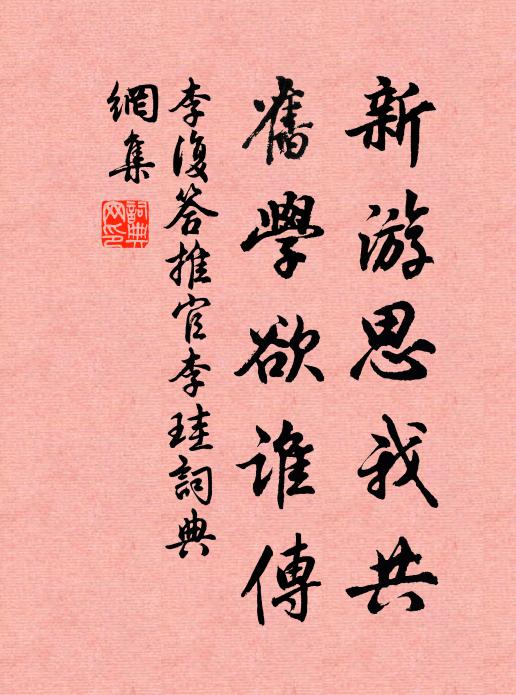 新游思我共
舊學欲谁傳
李復答推官李珪詞典
網集
詞典網印